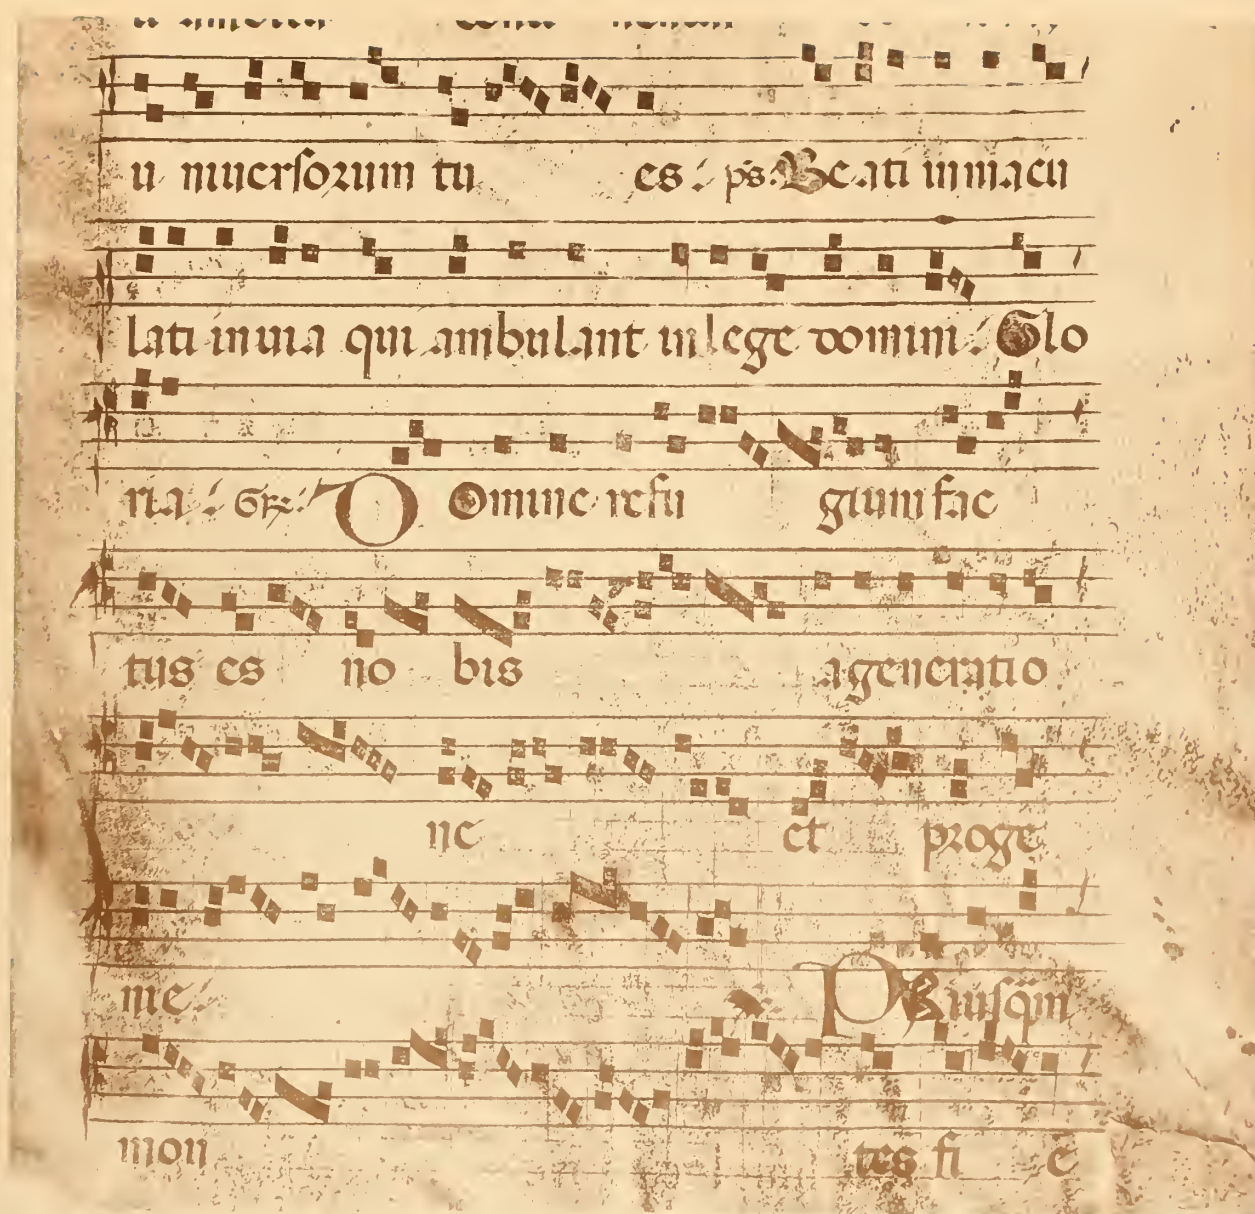 u niuersorum tu es : ps. Beati inmacu
lati in uia qui ambulant in lege domini : Glo
ria : GR : DOmine refu gium fac
tus es no bis a generatio
ne et proge
nie : PRiusqm
mon tes fi e